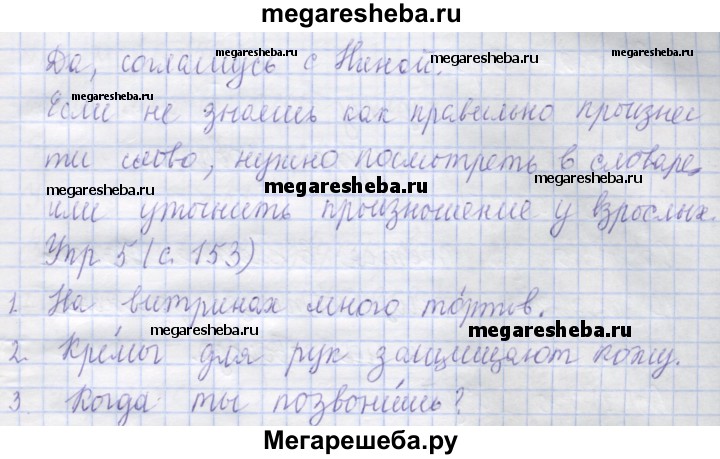 megaresheba.ru
Да, соглашусь с Ниной.
megaresheba.ru megaresheba.ru
megaresheba.ru
Если не знаешь как правильно произнес
ти слово, нужно посмотреть в словаре,
megaresheba.ru megaresheba.ru megaresheba.ru
или уточнить произношение у взрослых.
Упр 5 (с. 153)
1. На витринах много то́ртов.
megaresheba.ru megaresheba.ru
2. Кре́мы для рук защищают кожу.
3. Когда ты позвони́шь?
megaresheba.ru megaresheba.ru
Мегарешеба.ру